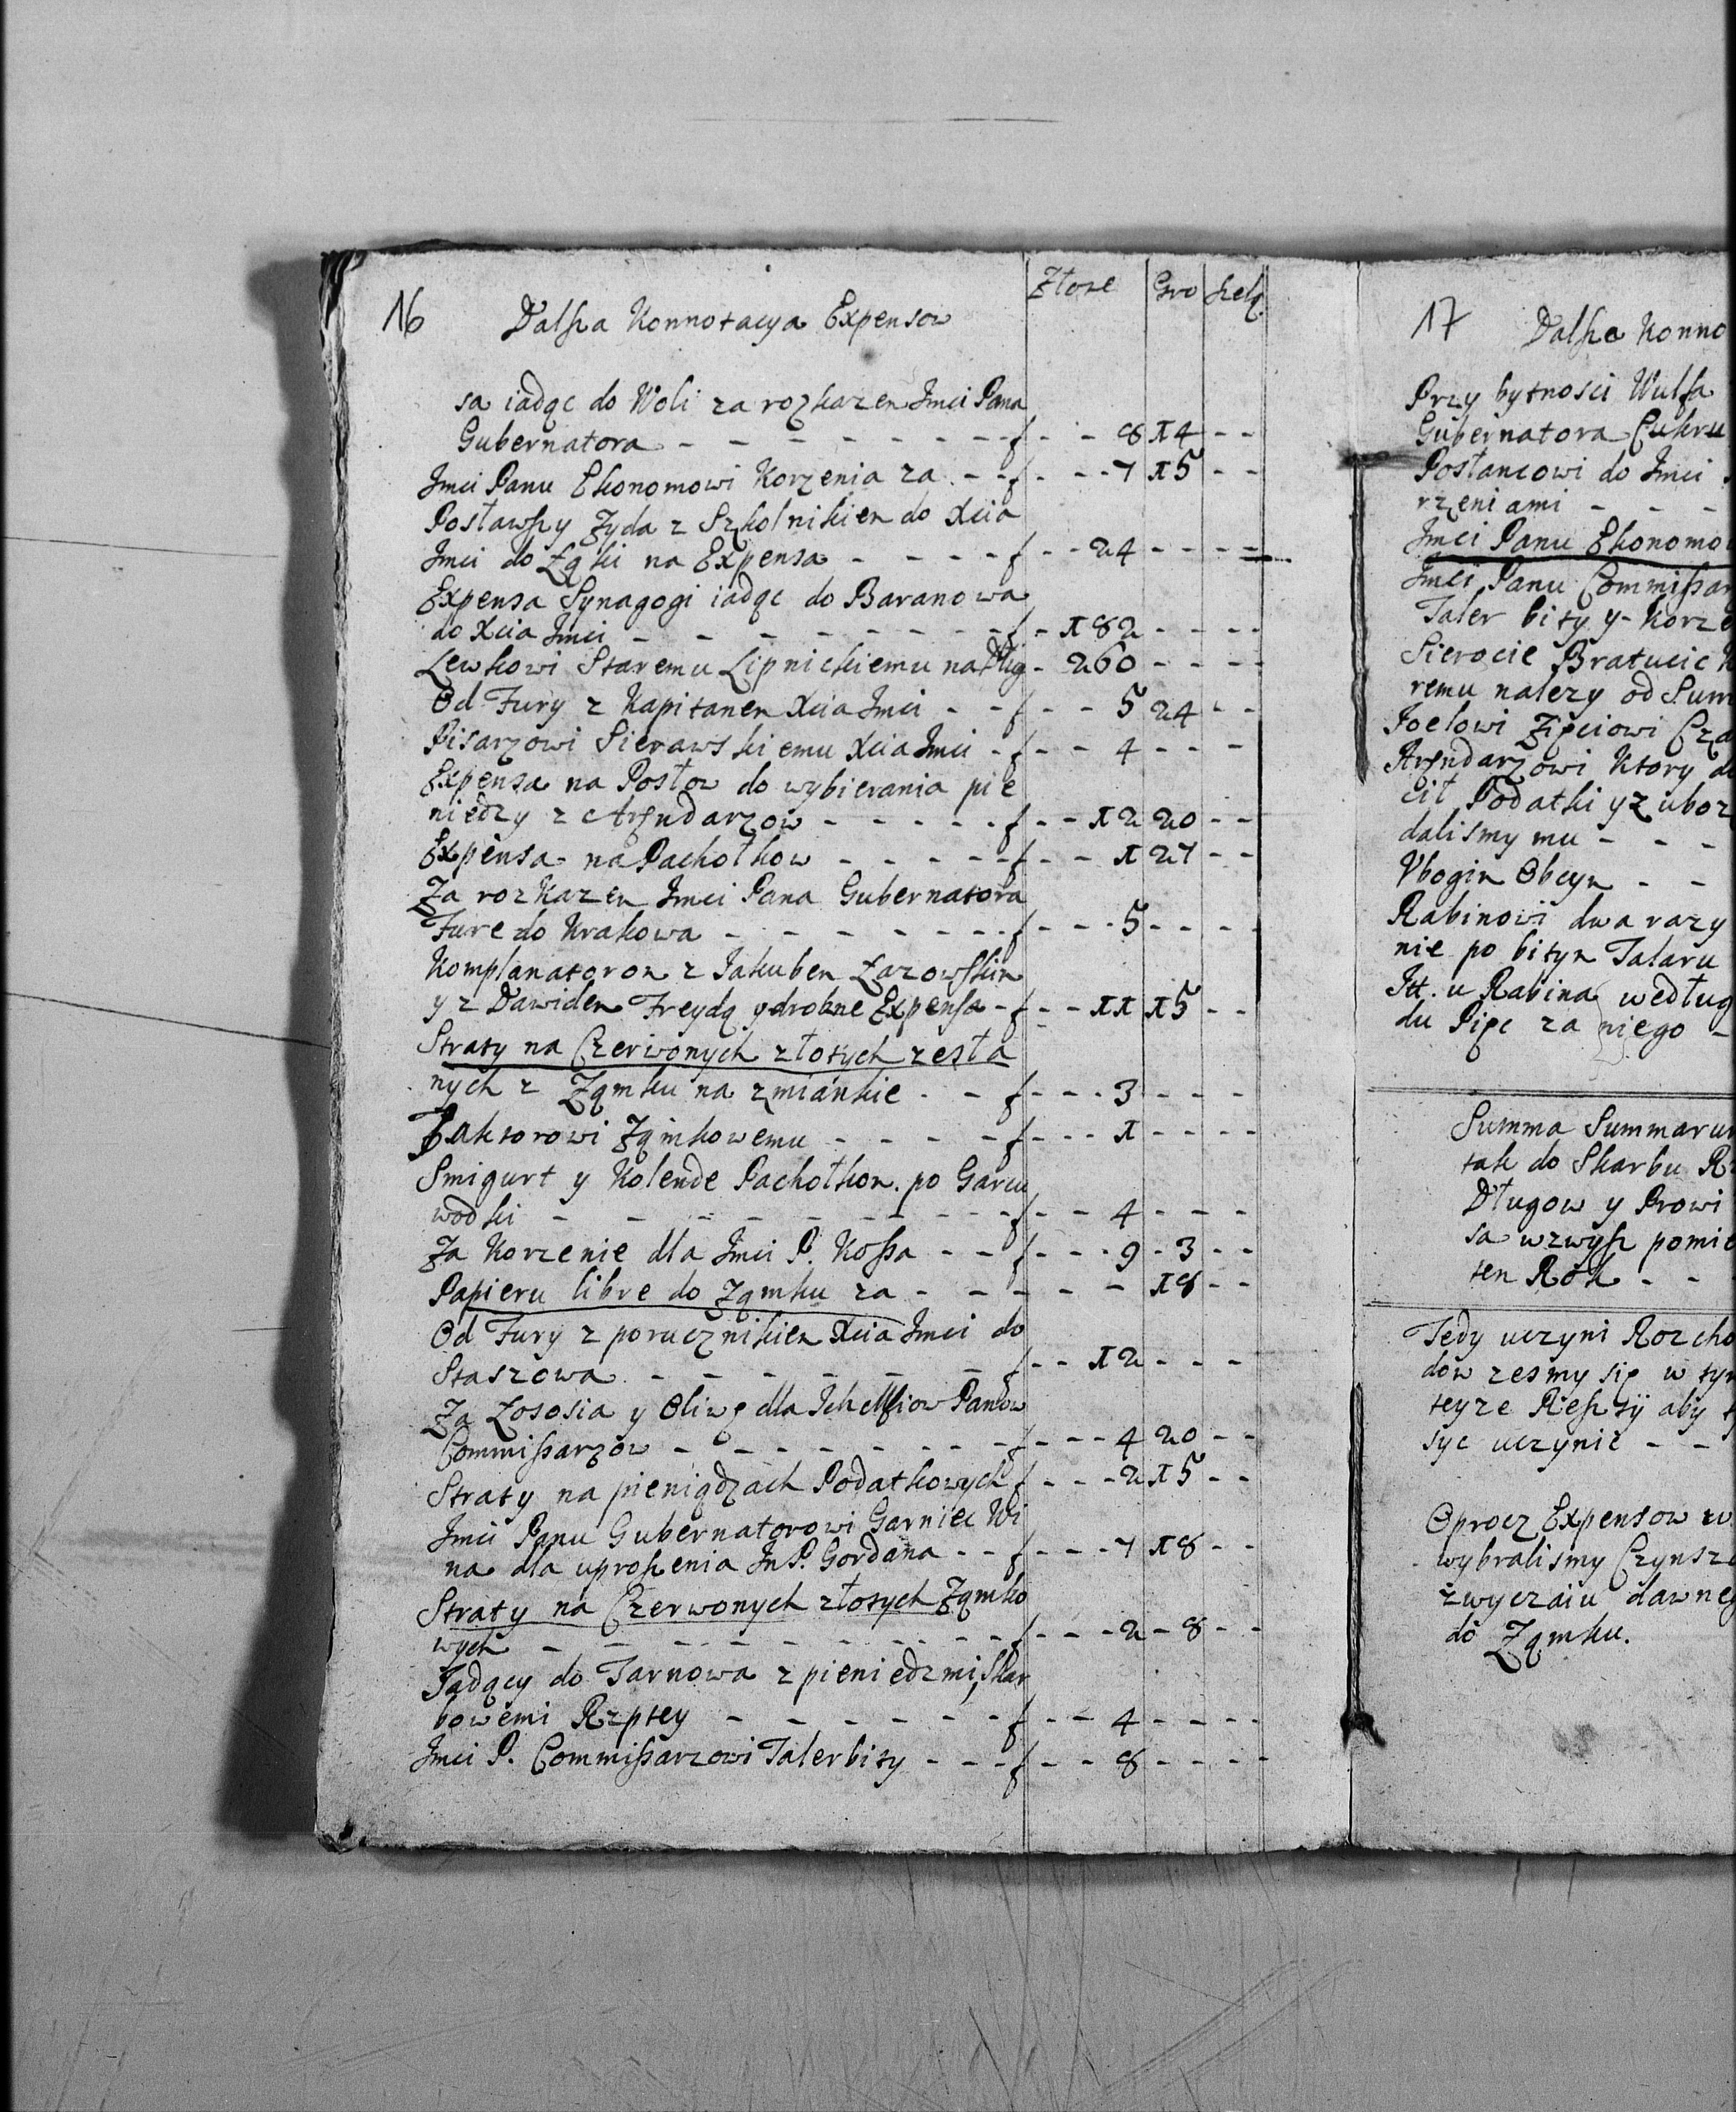 Złote Gro szelg.
16 Dalsza Konnotacya Expensow
sa iadąc do Woli za rozkazem Jmci Pana
Gubernatora - - - - - - - f - - 8 14 - -
Jmci Panu Ekonomowi Korzenia za - - f - - - 7 15 - -
Posławszy Zyda z Szkolnikiem do Xcia
Jmci do Łąki na Expensa - - - - f - - 24 - - - -
Expensa Synagogi iadąc do Baranowa
do Xcia Jmci - - - - - - - f - 182 - - - -
Lewkowi Staremu Lipnickiemu na Dług - 260 - - - -
Od Fury z Kapitanem Xcia Jmci - - f - - 5 24 - -
Pisarzowi Sierawskiemu Xcia Jmci - f - - 4 - - -
Expensa na Posłow do wybierania pie
niedzy z Arendarzow - - - - - f - - 12 20 - -
Expensa na Pachołkow - - - - - f - - 1 27 - -
Za rozkazem Jmci Pana Gubernatora
Fure do Krakowa - - - - - - f - - - 5 - - - -
Komplanatorom z Jakubem Łazowskim
y z Dawidem Freydą y drobne Expensa - f - - 11 15 - -
Straty na Czerwonych złotych zesła
nych z Ząmku na zmiánkie - - f - - - 3 - - -
Faktorowi Zqmkowemu - - - - - f - - - 1 - - - -
Smigurt y Kolende Pachołkom po Garcu
wodki - - - - - - - - f - - 4 - - -
Za Korzenie dla Jmci P. Kossa - - f - - - 9 - 3 - -
Papieru libre do Zqmku za - - - - - 18 - -
Od Fury z porucznikiem Xcia Jmci do
Staszowa - - - - - - f - - 12 - - -
Za Łososia y Oliwę dla Ich Mciow Panow
Commissarzow - - - - - - - f - - - 4 20 - -
Straty na pieniądzach Podatkowych f - - - 2 15 - -
Jmci Panu Gubernatorowi Garniec Wi
na dla uproszenia Jm P. Gordana - - f - - - 7 18 - -
Straty na Czerwonych złotych Zqmko
wych - - - - - - - - - f - - - 2 - 8 - -
Jadący do Tarnowa z pieniedzmi Skar
bowemi Rzptey - - - - - f - - 4 - - - -
Jmci P. Commissarzowi Taler bity - - - f - - 8 - - - -
17 Dalsza Konno
Przy bytnosci
Gubernatora Cukru
Posłancowi do Jmci
rzeniami - - -
Jmci Panu Ekonomo
Jmci Panu Commissar
Taler bity y Korze
Sierocie Bratucic
remu nalezy od Sum
Joelowi Zięciowi
Arendarzowi Ktory
cił Podatki y z uboz
dalismy mu - - -
Vbogim Obcym - -
Rabinowi dwa razy
nie po bitym Talaru
Itt. u Rabina według
du Pięc za niego -
Summa Summarum
tak do Skarbu
Długow y Prowi
sa wzwysz pomie
ten Rok - -
Tedy uczyni Rozcho
dow zesmy się w tym
teyze aby
syc uczynic - -
Oprocz Expensow
wybralismy Czynsz
zwyczaiu dawneg
do Zqmku.